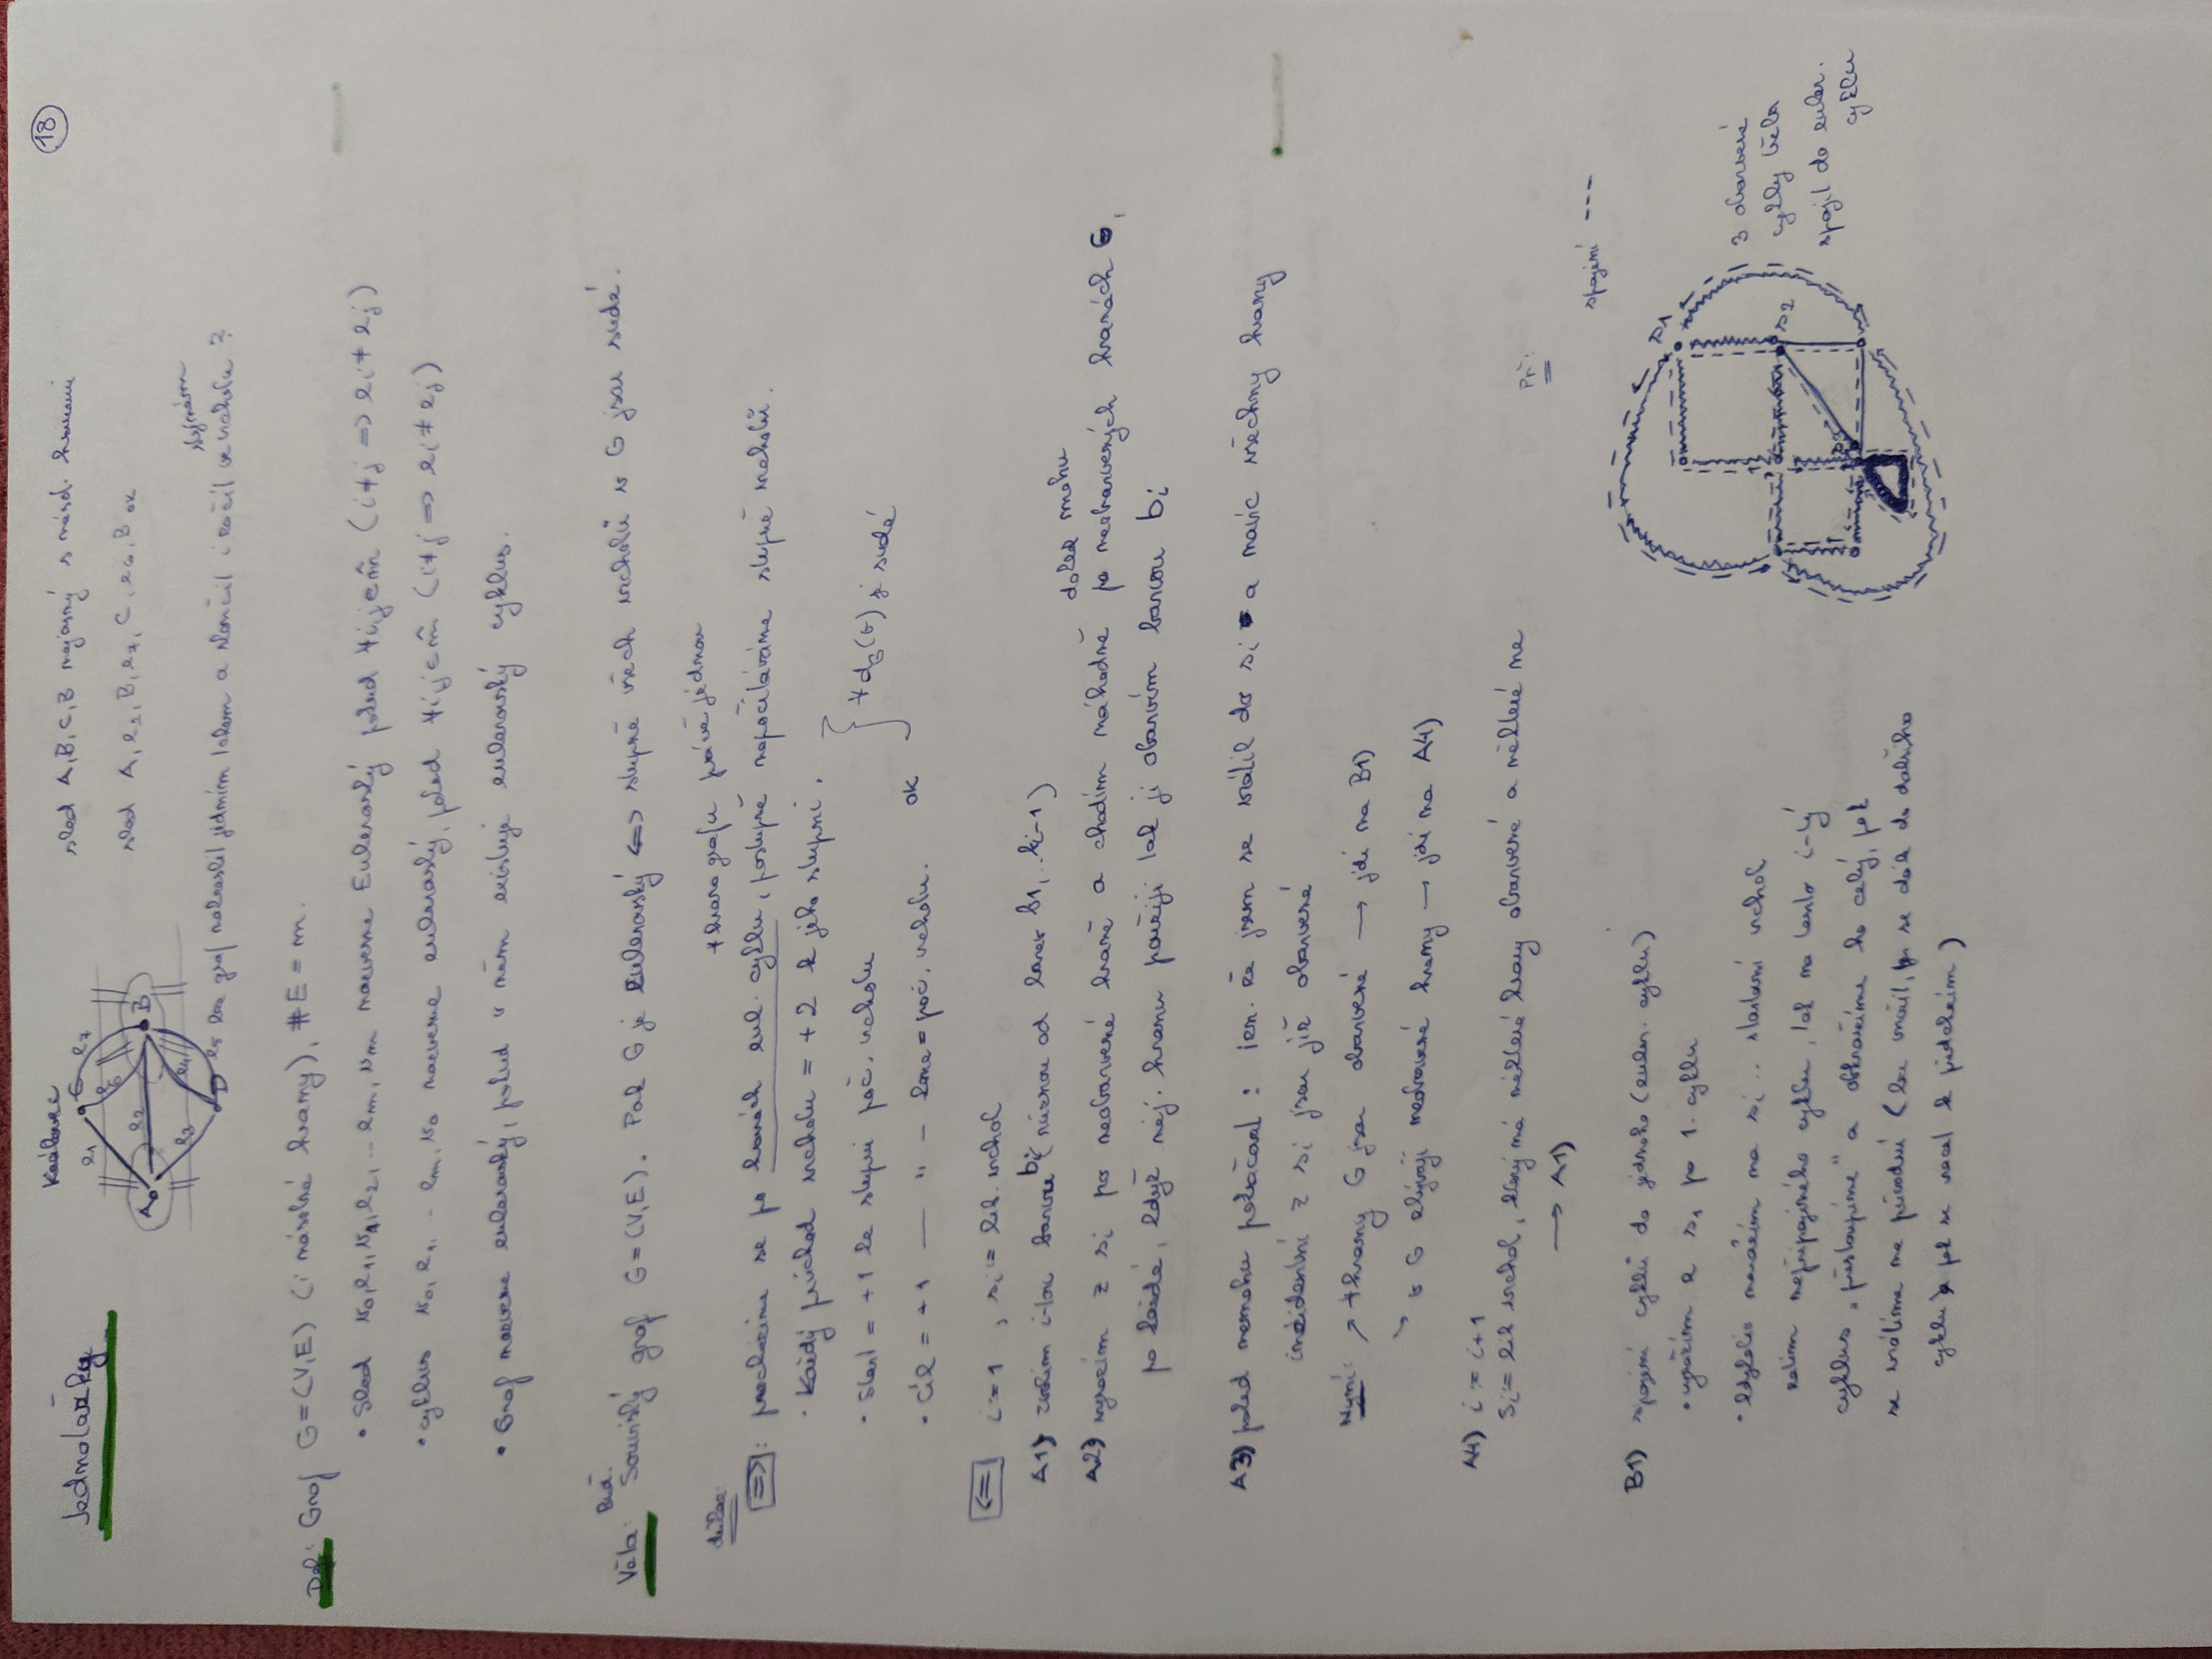 18
Jednotažky
Královec
sled A,B,C,B nejasný s násob. hranami
sled A, e2, B, e7, C, e6, B ok
A
B
C
D
e1
e2
e3
e4
e5
e6
e7
lze graf nakreslit jedním tahem a skončit i začít ve stejném vrcholu ?
Def: Graf G=(V,E) (i násobné hrany), #E = m.
• Sled v0,e1,v1,e2,... em,vm nazveme Eulerovský pokud ∀i,j∈m̂ (i≠j => ei≠ej)
• cyklus v0,e1,.. em,v0 nazveme eulerovský, pokud ∀i,j∈m̂ (i≠j => ei≠ej)
• Graf nazveme eulerovský, pokud v něm existuje eulerovský cyklus.
Věta: Buď Souvislý graf G=(V,E). Pak G je eulerovský <=> stupně všech vrcholů v G jsou sudé.
důkaz:
∀hrana grafu právě jednou
=>: procházíme se po hranách eul. cyklu, postupně napočítáváme stupně vrcholů.
• Každý průchod vrcholu = +2 k jeho stupni.
• Start = +1 ke stupni poč. vrcholu
• Cíl = +1 — " — konc=poč. vrcholu. ok
∀dG(v) je sudé
<= i=1, si= lib. vrchol
A1) zvolím i-tou barvu bi (různou od barev b1,..bi-1)
A2) vyrazím z si po neobarvené hraně a chodím náhodně po neobarvených hranách G,
dokud mohu
po každé, když něj. hranu použiji tak ji obarvím barvou bi
A3) pokud nemohu pokračovat : zn. že jsem se vrátil do si a navíc všechny hrany
incidentní z si jsou již obarvené
Nyní: ↗ ∀hrany G jsou obarvené → jdi na B1)
↘ v G zbývají neobarvené hrany → jdi na A4)
A4) i:= i+1
Si= lib vrchol, který má některé hrany obarvené a některé ne
→ A1)
B1) spojení cyklů do jednoho (euler. cyklu)
• vyrážím z s1 po 1. cyklu
• kdykoliv narazím na si .. startovní vrchol
zatím nepřipojeného cyklu, tak na tento i-tý
cyklus „přestoupíme" a obkroužíme ho celý, pak
se vrátíme na původní
cyklu pak se vracet k předchozím)
Př:
spojení ---
s1
s2
s3
3 obarvené
cykly třeba
spojit do euler.
cyklu